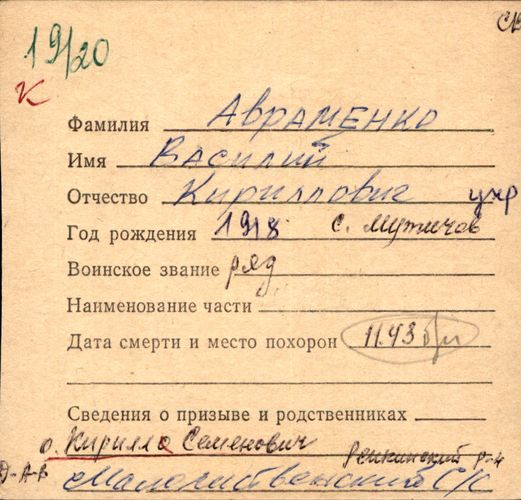 19/20
к
Фамилия АВРАМЕНКО
Имя ВАСИЛИЙ
Отчество Кириллович укр
Год рождения 1918 с. Мужичов
Воинское звание ряд
Наименование части
Дата смерти и место похорон 11.43
Сведения о призыве и родственниках
о. Кирилло Семенович
Репкинский р-н
с/с